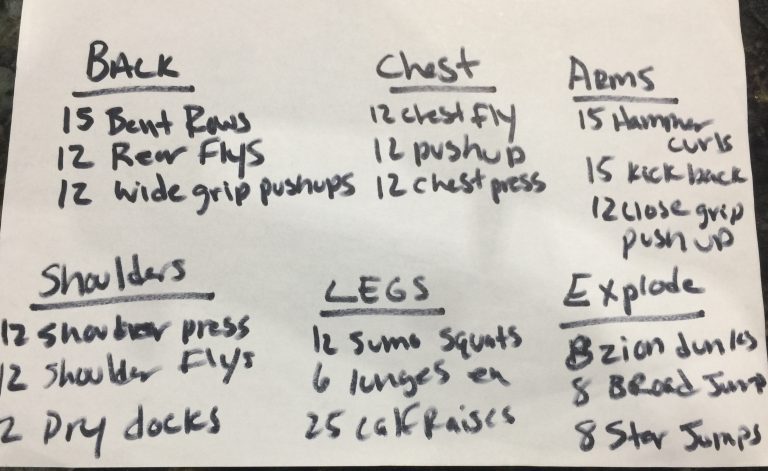 BACK
15 Bent Rows
12 Rear Flys
12 wide grip pushups
Chest
12 chest fly
12 pushup
12 chest press
Arms
15 Hammer
curls
15 kick back
12 close grip
push up
Shoulders
12 shoulder press
12 shoulder Flys
2 Dry docks
LEGS
12 sumo squats
6 lunges ea
25 calf Raises
Explode
8 zion dunks
8 BRoad Jump
8 Star Jumps